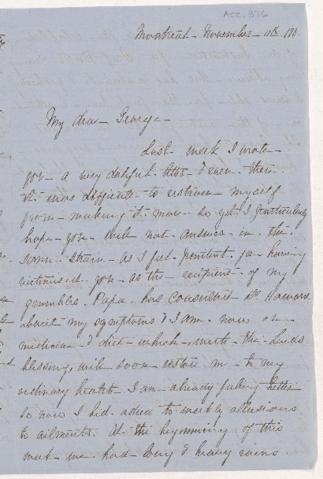 ACC. 976
Montreal - November - 11th,
My dear George -
Last week I wrote
you a very doleful letter & even then
it was difficult to restrain myself
from making it more so yet I particularly
hope you will not answer in the
same strain - as I feel penitent for having
victimised you as the recipient of my
grumbles. Papa has consulted Dr.
about my symptoms & I am now on
medicine & diet which with the Lord's
blessing will soon restore me to my
ordinary health - I am already feeling better
so now I bid adieu to weekly allusions
to ailments. At the beginning of this
week we had very heavy rains.